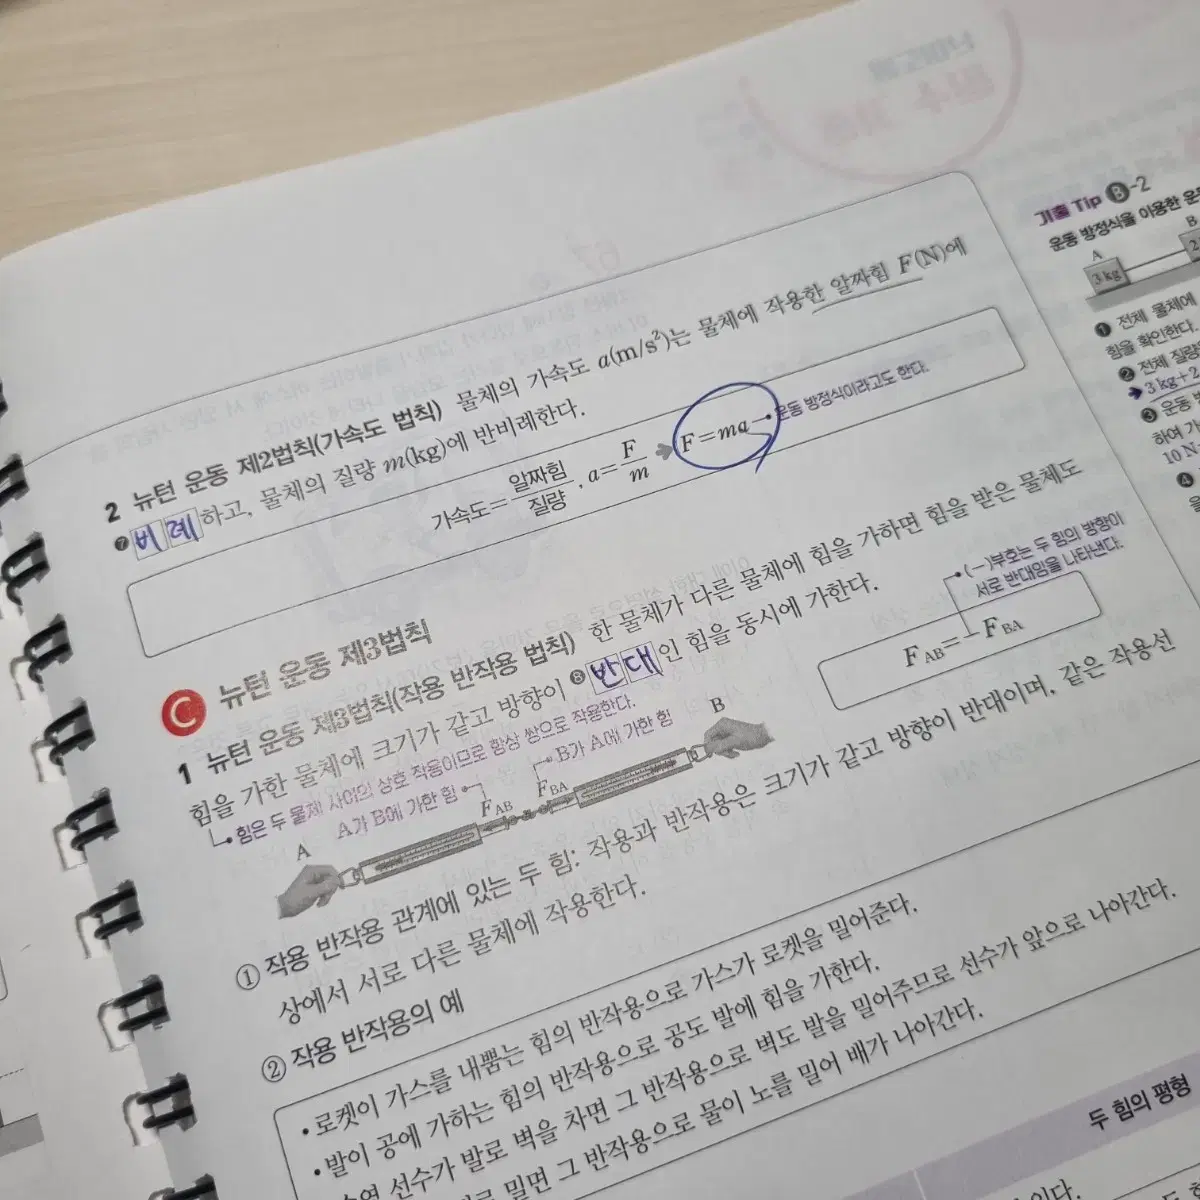 2 뉴턴 운동 제2법칙(가속도 법칙) 물체의 가속도 a(m/s²)는 물체에 작용한 알짜힘 F(N)에
❼ 비례하고, 물체의 질량 m(kg)에 반비례한다.
가속도=알짜힘/질량, a=F/m ➔ F=ma
운동 방정식이라고도 한다.
C 뉴턴 운동 제3법칙
1 뉴턴 운동 제3법칙(작용 반작용 법칙) 한 물체가 다른 물체에 힘을 가하면 힘을 받은 물체도
힘을 가한 물체에 크기가 같고 방향이 ❽ 반대인 힘을 동시에 가한다.
힘은 두 물체 사이의 상호 작용이므로 항상 쌍으로 작용한다.
(−)부호는 두 힘의 방향이
서로 반대임을 나타낸다.
F_AB=−F_BA
A가 B에 가한 힘
B가 A에 가한 힘
A
F_AB
F_BA
B
① 작용 반작용 관계에 있는 두 힘: 작용과 반작용은 크기가 같고 방향이 반대이며, 같은 작용선
상에서 서로 다른 물체에 작용한다.
② 작용 반작용의 예
• 로켓이 가스를 내뿜는 힘의 반작용으로 가스가 로켓을 밀어준다.
• 발이 공에 가하는 힘의 반작용으로 공도 발에 힘을 가한다.
수영 선수가 발로 벽을 차면 그 반작용으로 벽도 발을 밀어주므로 선수가 앞으로 나아간다.
밀면 그 반작용으로 물이 노를 밀어 배가 나아간다.
두 힘의 평형
기출 Tip B-2
운동 방정식을 이용한
A
3 kg
B
2
❶ 전체 물체에
힘을 확인한다.
❷ 전체
➔ 3 kg+2
❸ 운동
하여
10 N
❹